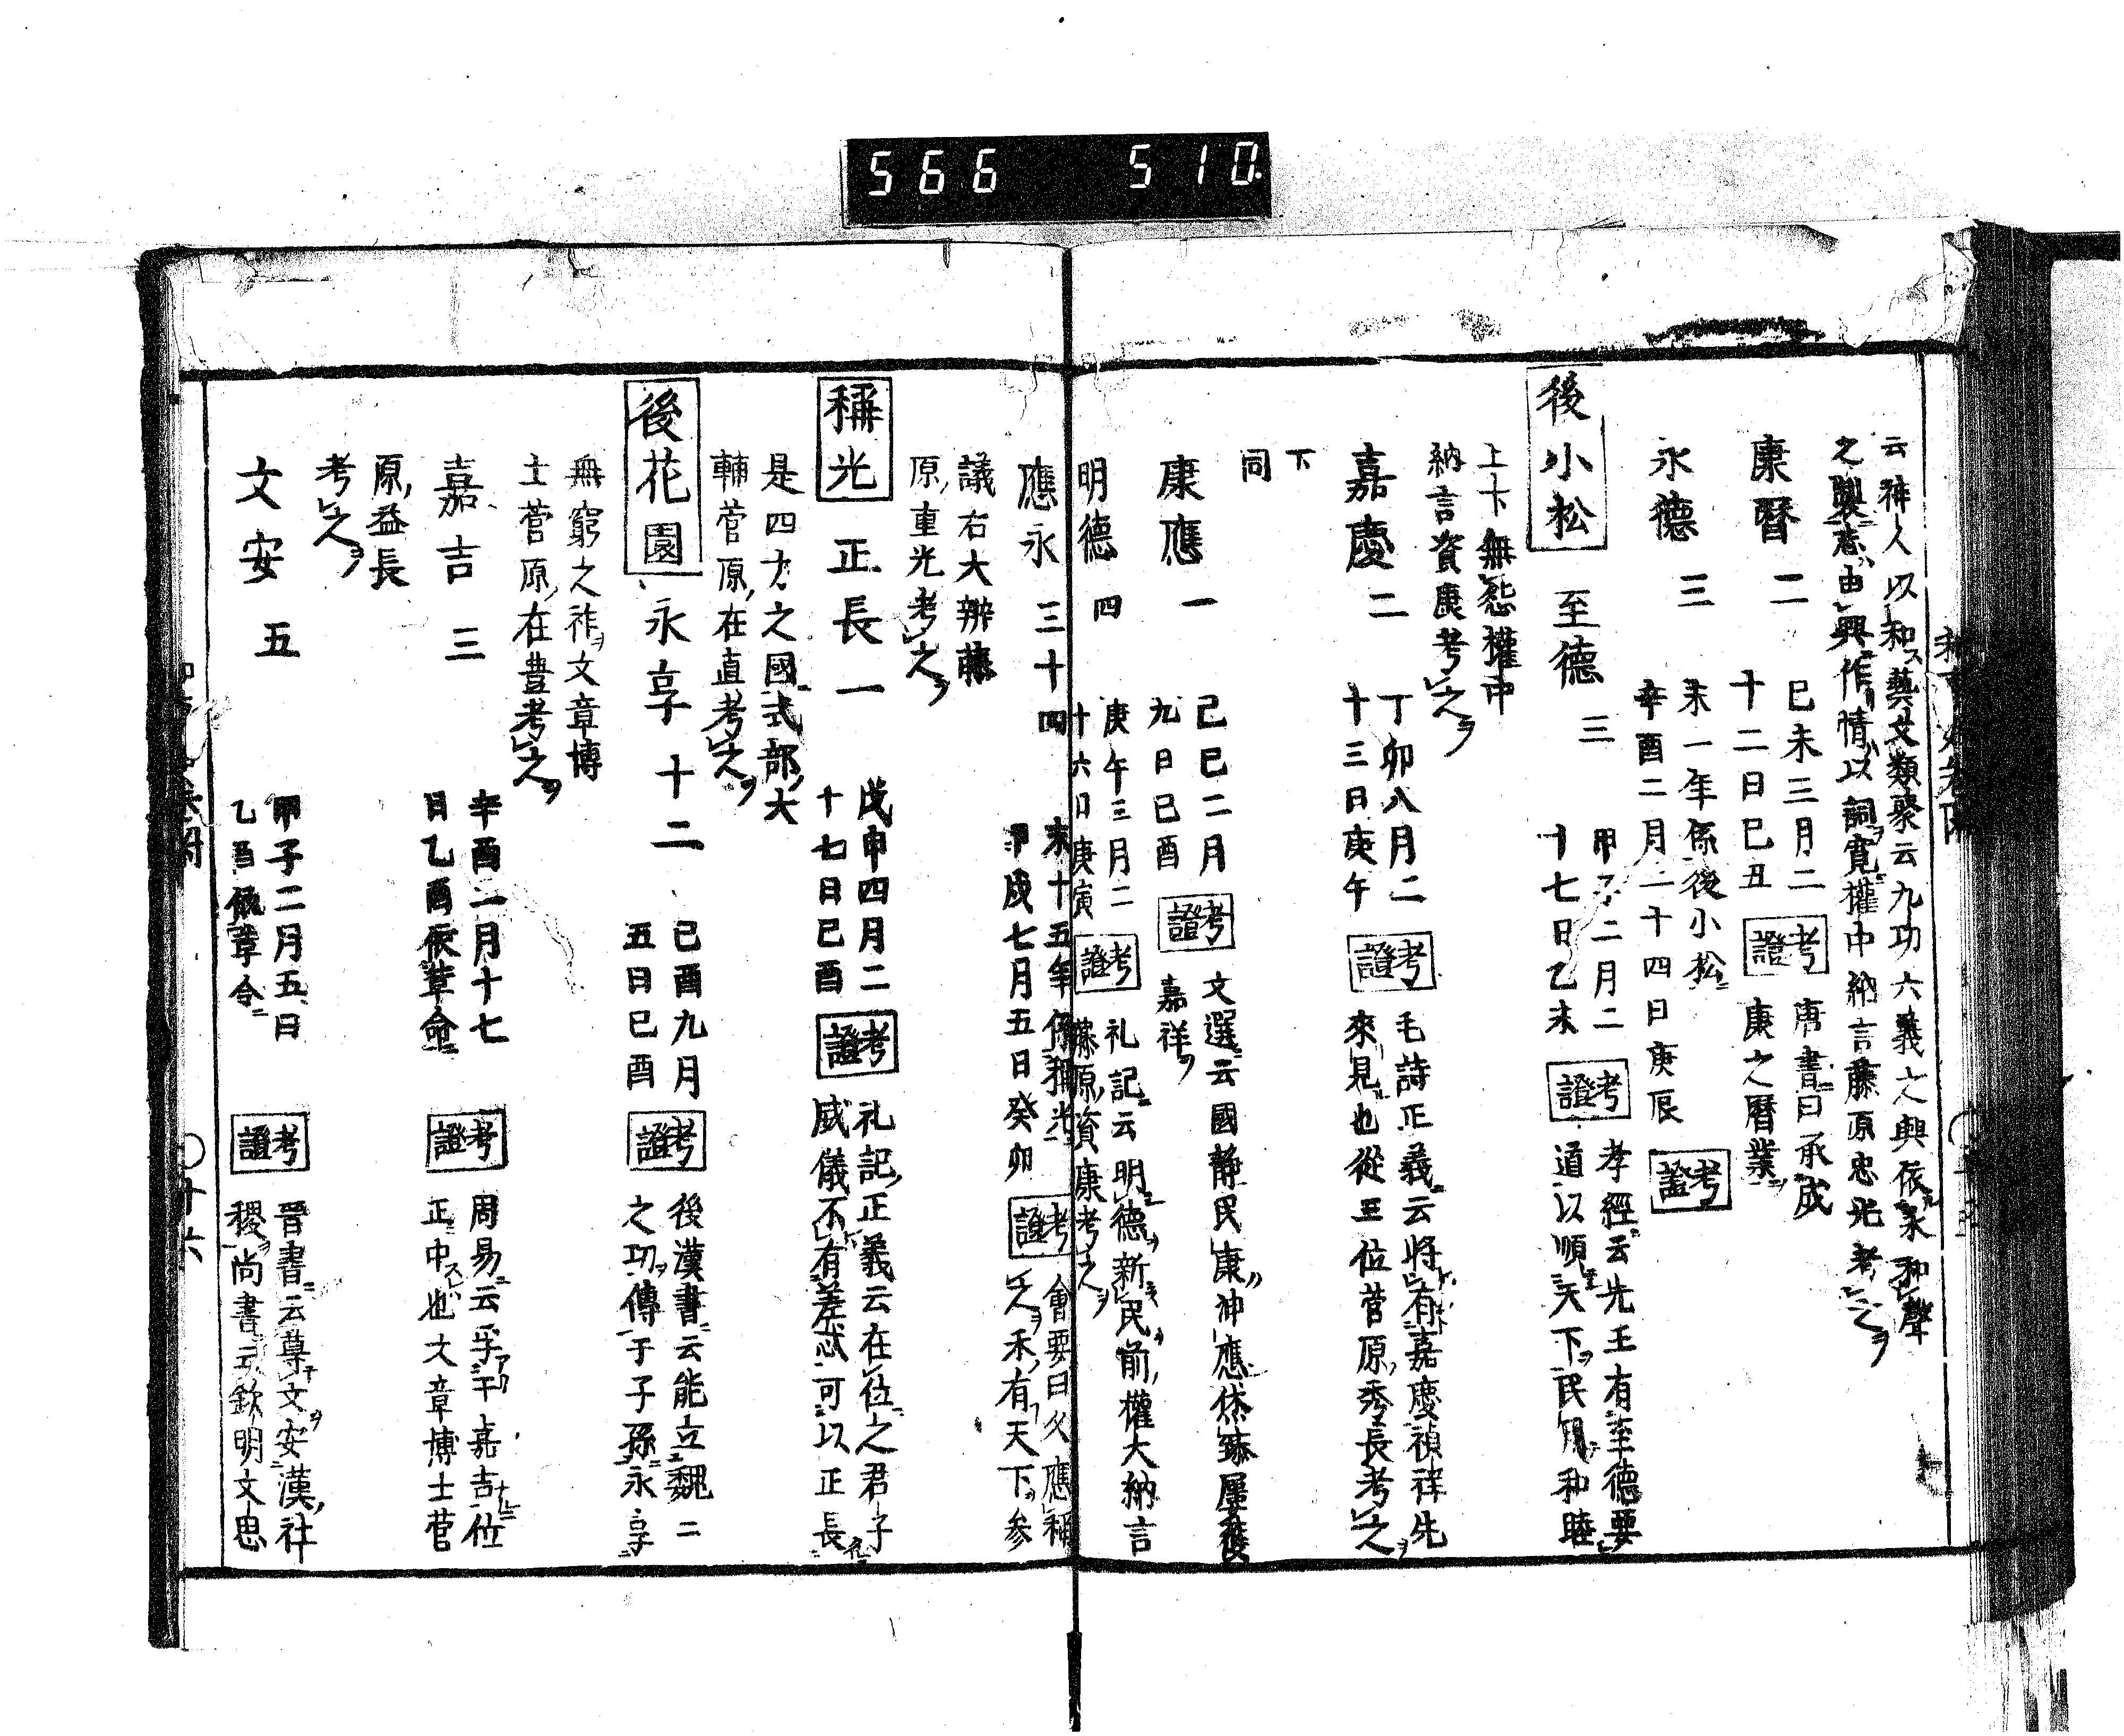 566 510.
云神人以和藝文類聚云九功六義之興依永和聲
之製志由興作情以詞寛權中納言藤原忠光考之
康暦二
己未三月二
十二日己丑
考證
唐書曰承成
康之暦業
永德三
末一年係後小松
辛酉二月二十四日庚辰
考證
後小松
至德三
甲子二月二
十七日乙未
考證
孝經云先王有至德要
道以順天下民用和睦
上下無怨權中
納言資康考之
嘉慶二
丁卯八月二
十三日庚午
考證
毛詩正義云將有嘉慶禎祥先
來見也從三位菅原秀長考之
下
同
康應一
己巳二月
九日己酉
考證
文選云國静民康神應休臻屢獲
嘉祥
明德四
庚午三月二
十六日庚寅
考證
礼記云明德新民前權大納言
藤原資康考之
應永三十四
末十五年係稱光
甲戌七月五日癸卯
考證
會要曰久應稱
之永有天下参
議右大辨藤
原重光考之
稱光
正長一
戊申四月二
十七日己酉
考證
礼記正義云在位之君子
威儀不有差忒可以正長
是四方之國式部大
輔菅原在直考之
後花園
永享十二
己酉九月
五日己酉
考證
後漢書云能立魏二
之功傳于子孫永享
無窮之祚文章博
士菅原在豊考之
嘉吉三
辛酉二月十七
日乙酉依革命
考證
周易云孚于嘉吉位
正中也文章博士菅
原益長
考之
文安五
甲子二月五日
乙酉依革令
考證
晋書云尊文安漢社
稷尚書云欽明文思
十六